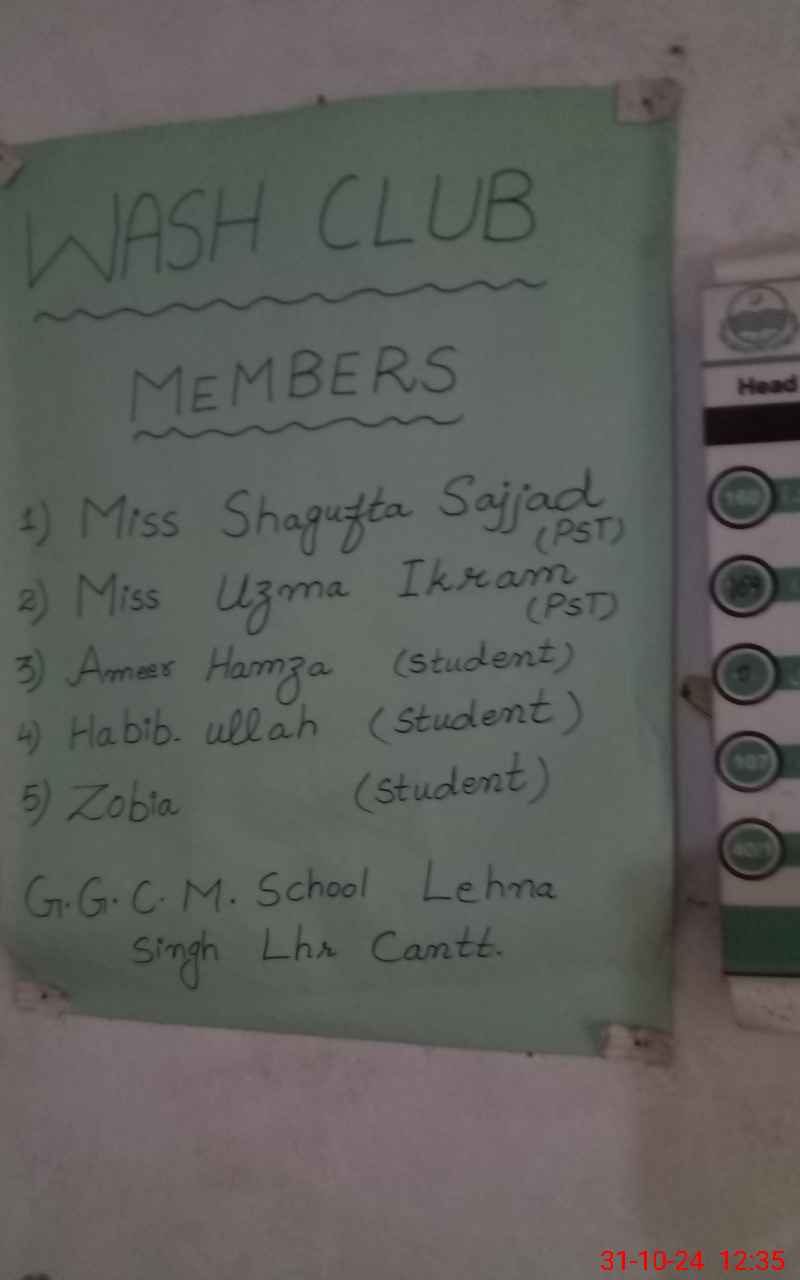 WASH CLUB
MEMBERS
1) Miss Shagufta Sajjad
(PST)
2) Miss Uzma Ikram
(PST)
3) Ameer Hamza (Student)
4) Habib. ullah (Student)
5) Zobia (Student)
G.G.C.M. School Lehna
Singh Lhr Cantt.
Head
31-10-24 12:35